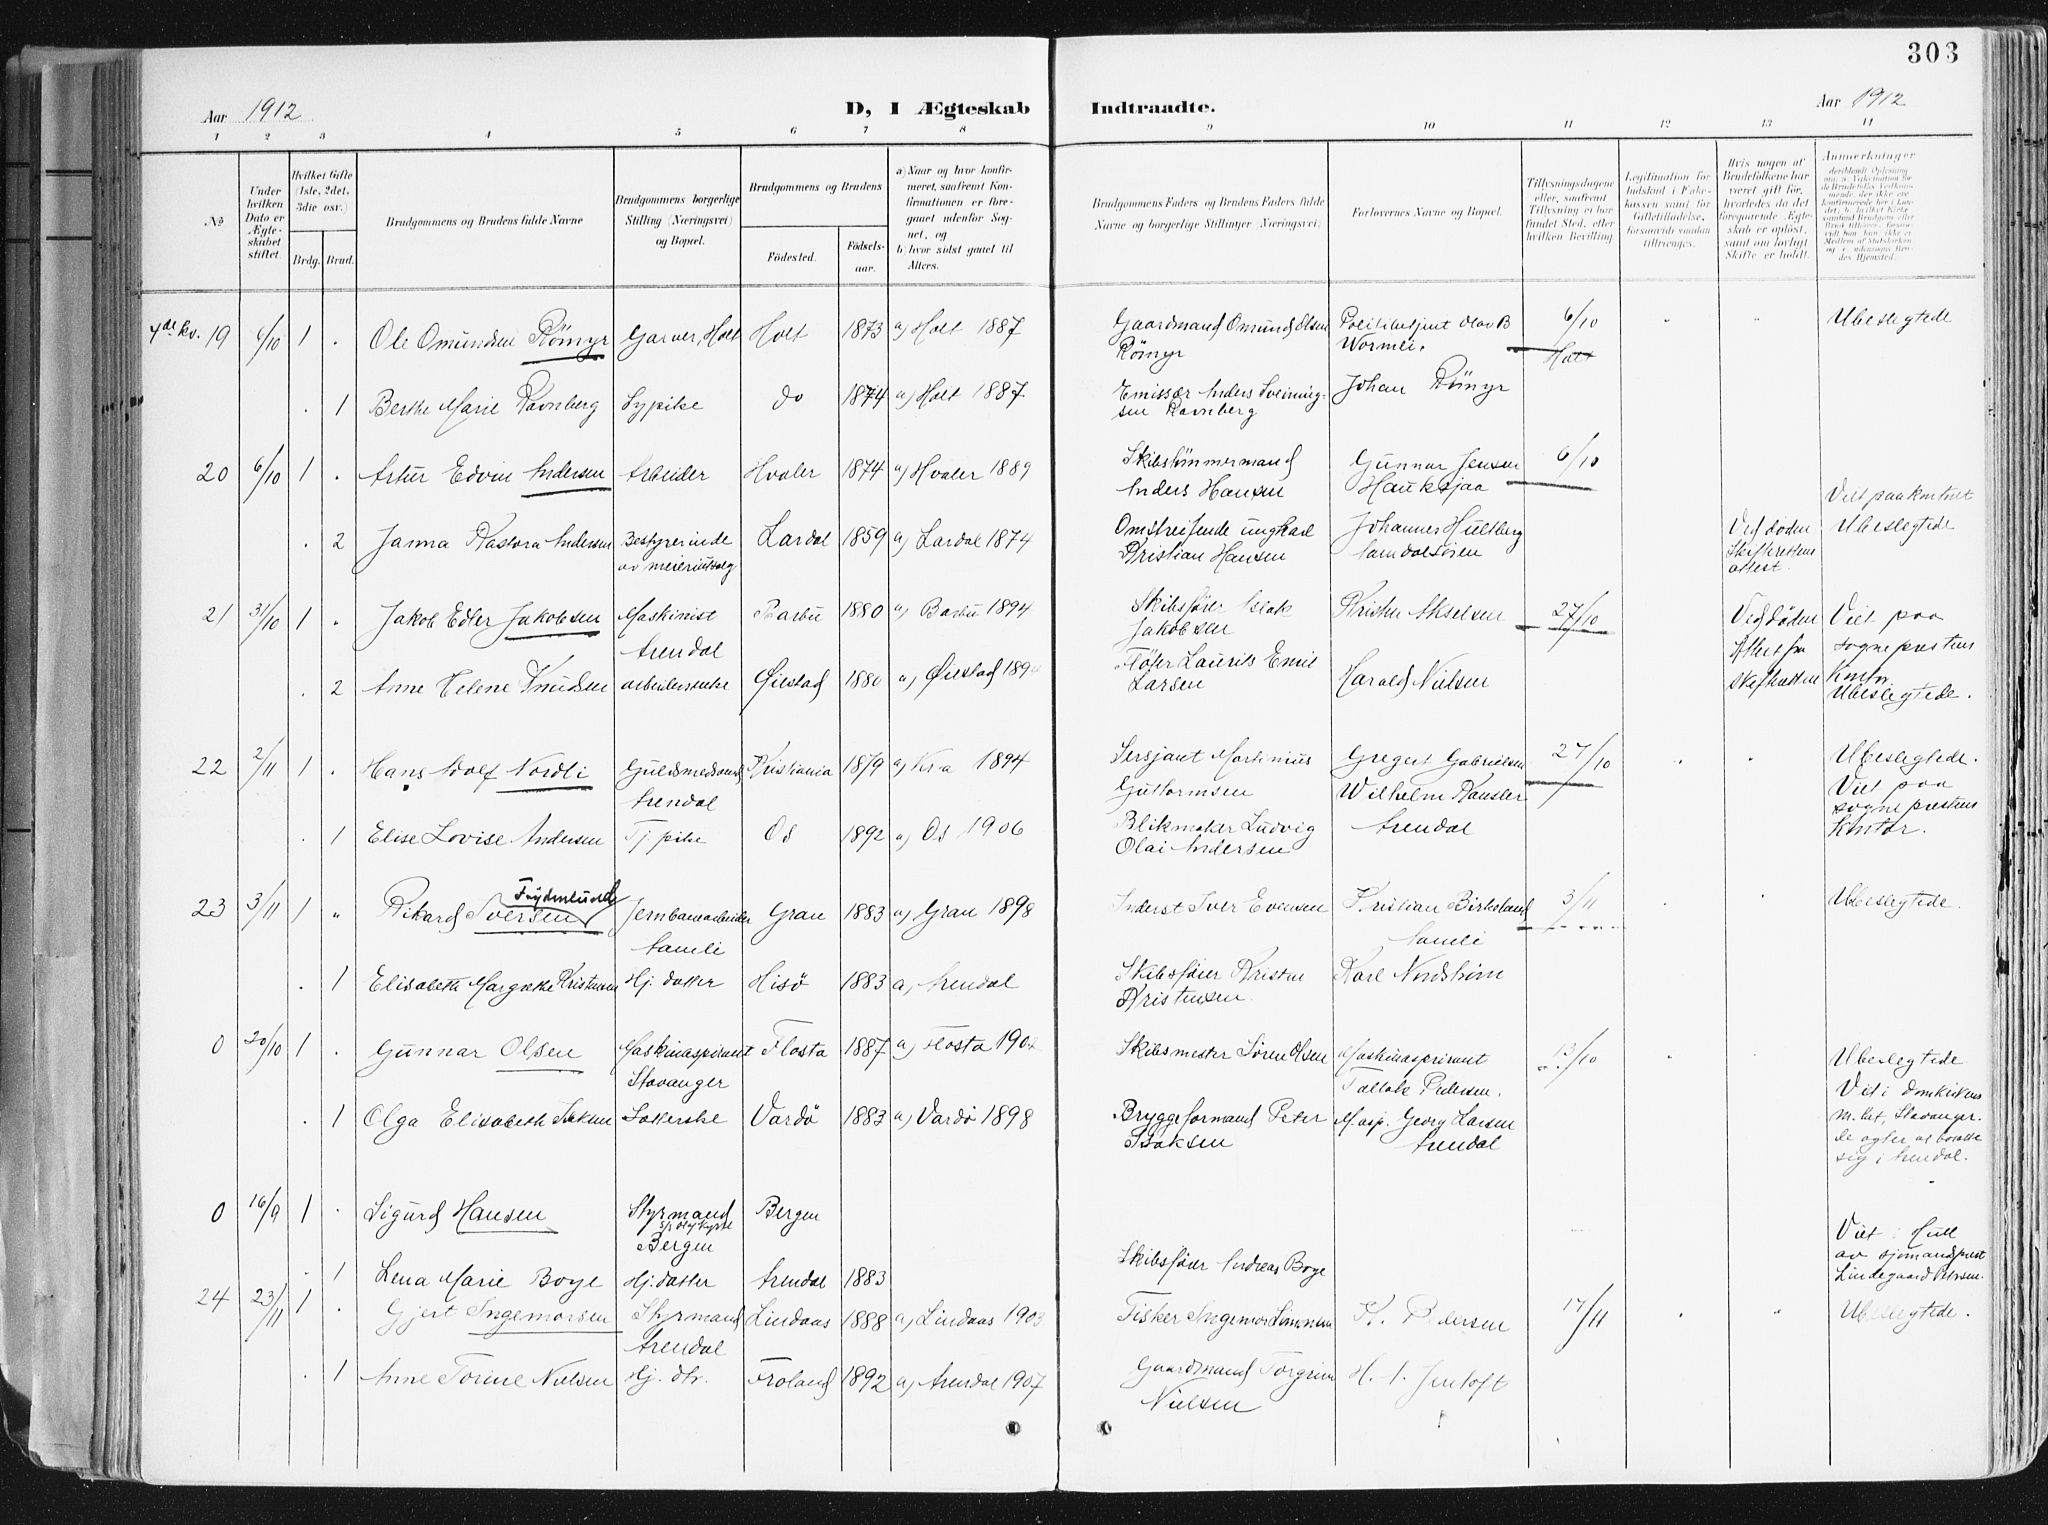 303
Aar 1912
D, I Ægteskab
Indtraadte.
Aar 1912
1 2 3 4 5 6 7 8 9 10 11 12 13 14
No
Under hvilken Dato er Ægteskabet stiftet.
Hvilket Gifte (1ste, 2det, 3die osv.)
Brdg. Brud.
Brudgommens og Brudens fulde Navne
Brudgommens borgerlige Stilling (Næringsvei) og Bopæl.
Brudgommens og Brudens
Fødested.
Fødselsaar.
a) Naar og hvor konfirmeret, saafremt Konfirmationen er foregaaet udenfor Sognet, og
b) hvor sidst gaaet til Alters.
Brudgommens Faders og Brudens Faders fulde Navne og borgerlige Stillinger (Næringsvei)
Forlovernes Navne og Bopæl.
Tillysningsdagene eller, saafremt Tillysning ei har fundet Sted, efter hvilken Bevilling
Legitimation for Indskud i Enkekassen samt for Giftetilladelse, forsaavidt saadan tiltrænges.
Hvis nogen af Brudefolkene har været gift før, hvorledes da det foregaaende Ægteskab er opløst, samt om lovligt Skifte er holdt.
Anmerkninger
4de kv. 19 6/10 1 " Ole Omundsen Römyr Garver, Holt Holt 1873 a) Holt 1887 Gaardmand Omund Olsen Römyr Politibetjent Olav B Wormli. 6/10 Holt " " Ubeslegtede
" 1 Berthe Marie Ravnberg Sypike do 1874 a) Holt 1887 Emissær Anders Sveiningsen Ravnberg Johan Römyr
20 6/10 1 " Artur Edvin Andersen Arbeider Hvaler 1874 a) Hvaler 1889 Skibstömmermand Anders Hansen Gunnar Jensen Hauksjaa 6/10
" 2 Janna Kastora Andersen Bestyrerinde av meieriutsalg Lardal 1859 a) Lardal 1874 Omstreifende ungkarl Kristian Hansen Johannes Hultberg Ved døden Skifterettens attest. Viet paa kontoret Ubeslegtede
21 31/10 1 " Jakob Edler Jakobsen Maskinist Arendal Barbu 1880 a) Barbu 1894 Skibsfører Islak Jakobsen Kristen Akselsen 27/10 Ved døden Attest fra Skifteretten Viet paa sogneprestens Kontor. Ubeslegtede.
" 2 Anne Helene Knudsen arbeiderske Øiestad 1880 a) Øiestad 189 Fløter Laurits Emil Larsen Harald Nielsen
22 2/11 1 " Hans Adolf Nordli Guldsmedsvend Arendal Kristiania 1879 a) Kra 1894 Sersjant Martinius Guttormsen Gregert Gabrielsen 27/10 " " Ubeslegtede. Viet paa sogneprestens Kontor.
" 1 Elise Lovise Andersen Tj pike Os 1892 a) Os 1906 Blikmaker Ludvig Olai Andersen Wilhelm Kansler Arendal
23 3/11 1 " Rikard Iversen Frydenlund Jernbanearbeider Aamli Gran 1883 a) Gran 1898 Inderst Iver Evensen Kristian Birkeland Aamli 3/11 " " Ubeslegtede.
" 1 Elisabeth Margrethe Kristensen Hj. datter Hisö 1883 a) Arendal Skibsfører Kristen Kristensen Karl Nordström
0 20/10 1 " Gunnar Olsen Maskinaspirant Stavanger Flosta 1887 a) Flosta 190 Skibsmester Søren Olsen Maskinaspirant Tallak Pedersen. 13/10 " " Ubeslegtede Viet i domkirkens m.het, Stavanger. De agter at bosætte sig i Arendal.
" 1 Olga Elisabeth Isaksen Lotterske Vardö 1883 a) Vardö 1898 Bryggeformand Peter Isaksen M.asp. Georg Larsen Arendal
0 16/9 1 " Sigurd Hansen Styrmand Bergen Bergen Viet i Hull av sjømandsprest Lindegaard Petersen.
" 1 Lena Marie Boye Hj. datter Arendal 1883 Skibsfører Andreas Boye
24 23/11 1 " Gjert Ingemorsen Styrmand Arendal Lindaas 1888 a) Lindaas 1903 Fisker Ingemor Simonsen K. Pedersen 17/11 " " Ubeslegtede.
" 1 Anne Torine Nielsen Hj. dtr. Froland 1892 a) Arendal 1907 Gaardmand Torgrim Nielsen H. A. Jentoft